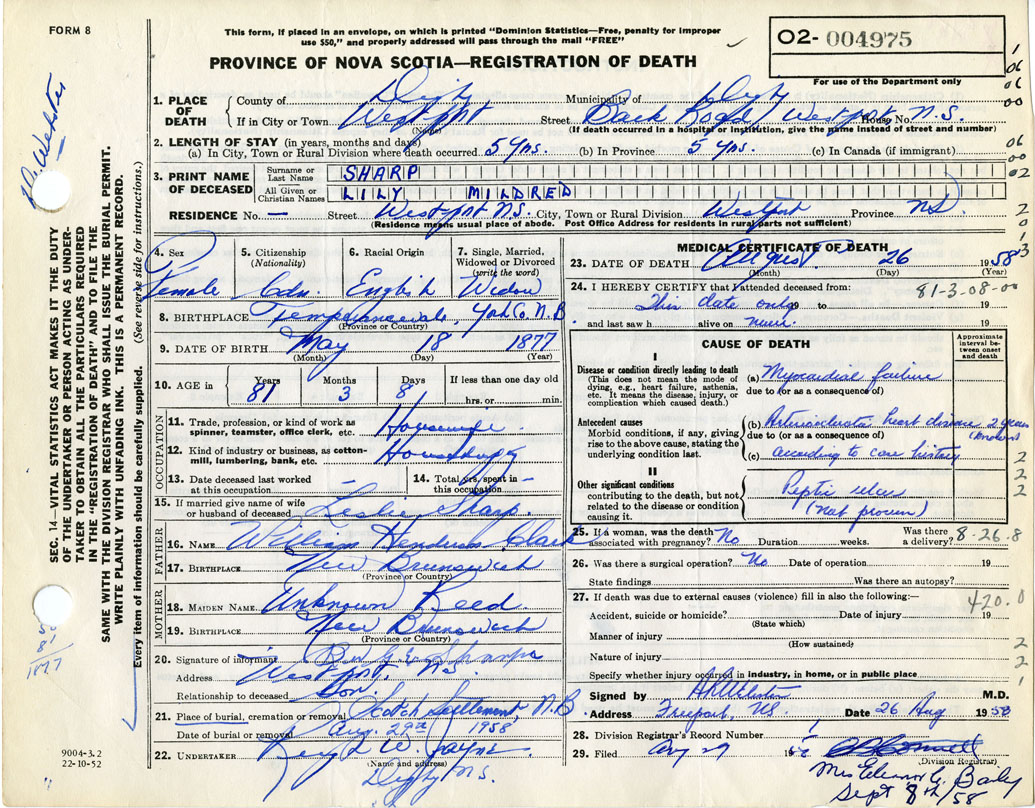 FORM 8
This form, if placed in an envelope, on which is printed "Dominion Statistics—Free, penalty for improper
use $50," and properly addressed will pass through the mail "FREE"
02- 004975
For use of the Department only
PROVINCE OF NOVA SCOTIA—REGISTRATION OF DEATH
1. PLACE OF DEATH County of Digby Municipality of Digby
If in City or Town Westport Street Back Road Westport N.S. House No.
(Name) (If death occurred in a hospital or institution, give the name instead of street and number)
2. LENGTH OF STAY (in years, months and days)
(a) In City, Town or Rural Division where death occurred 5 yrs. (b) In Province 5 yrs. (c) In Canada (if immigrant)
3. PRINT NAME OF DECEASED Surname or Last Name SHARP
All Given or Christian Names LILY MILDRED
RESIDENCE No. — Street Westport N.S. City, Town or Rural Division Westport Province N.S.
(Residence means usual place of abode. Post Office Address for residents in rural parts not sufficient)
4. Sex Female
5. Citizenship (Nationality) Cdn.
6. Racial Origin English
7. Single, Married, Widowed or Divorced (write the word) Widow
8. BIRTHPLACE Temperancevale, York Co. N.B.
(Province or Country)
9. DATE OF BIRTH May 18 1877
(Month) (Day) (Year)
10. AGE in Years 81 Months 3 Days 8 If less than one day old hrs. or min.
OCCUPATION
11. Trade, profession, or kind of work as spinner, teamster, office clerk, etc. Housewife
12. Kind of industry or business, as cotton-mill, lumbering, bank, etc.
13. Date deceased last worked at this occupation — 14. Total yrs. spent in this occupation —
15. If married give name of wife or husband of deceased Leslie Sharp.
FATHER
16. NAME William Henderson Clark
17. BIRTHPLACE New Brunswick
(Province or Country)
MOTHER
18. MAIDEN NAME Unknown Reed
19. BIRTHPLACE New Brunswick
(Province or Country)
20. Signature of informant Sharpe
Address Westport, N.S.
Relationship to deceased Son.
21. Place of burial, cremation or removal Scotch Settlement, N.B
Date of burial or removal Aug. 29th 1958
22. UNDERTAKER W. Jayne
(Name and address)
Digby N.S.
MEDICAL CERTIFICATE OF DEATH
23. DATE OF DEATH August 26 1958
(Month) (Day) (Year)
24. I HEREBY CERTIFY that I attended deceased from: 81-3-08-00
This date only 19 to 19
and last saw h alive on never. 19
CAUSE OF DEATH
Approximate interval between onset and death
I
Disease or condition directly leading to death
(This does not mean the mode of dying, e.g., heart failure, asthenia, etc. It means the disease, injury, or complication which caused death.)
(a) Myocardial failure
due to (or as a consequence of)
Antecedent causes
Morbid conditions, if any, giving rise to the above cause, stating the underlying condition last.
(b) Arteriosclerotic heart disease 2 years (known)
due to (or as a consequence of)
(c) according to case history
II
Other significant conditions
contributing to the death, but not related to the disease or condition causing it.
Peptic ulcer
(not proven)
25. If a woman, was the death associated with pregnancy? No Duration weeks. Was there a delivery? 8-26-8
26. Was there a surgical operation? No Date of operation 19
State findings Was there an autopsy?
27. If death was due to external causes (violence) fill in also the following:— 420.0
Accident, suicide or homicide? Date of injury 19
(State which)
Manner of injury
(How sustained)
Nature of injury
Specify whether injury occurred in industry, in home, or in public place
Signed by M.D.
Address Freeport, NS Date 26 Aug 1958
28. Division Registrar's Record Number
29. Filed Aug 29
(Division Registrar)
Mrs Eleanor G. Baily
Sept 8th/58
SEC. 14—VITAL STATISTICS ACT MAKES IT THE DUTY
OF THE UNDERTAKER OR PERSON ACTING AS UNDER-
TAKER TO OBTAIN ALL THE PARTICULARS REQUIRED
IN THE "REGISTRATION OF DEATH" AND TO FILE THE
SAME WITH THE DIVISION REGISTRAR WHO SHALL ISSUE THE BURIAL PERMIT.
WRITE PLAINLY WITH UNFADING INK. THIS IS A PERMANENT RECORD.
Every item of information should be carefully supplied. (See reverse side for instructions.)
Dr. Webster
1877
9004-3.2
22-10-52